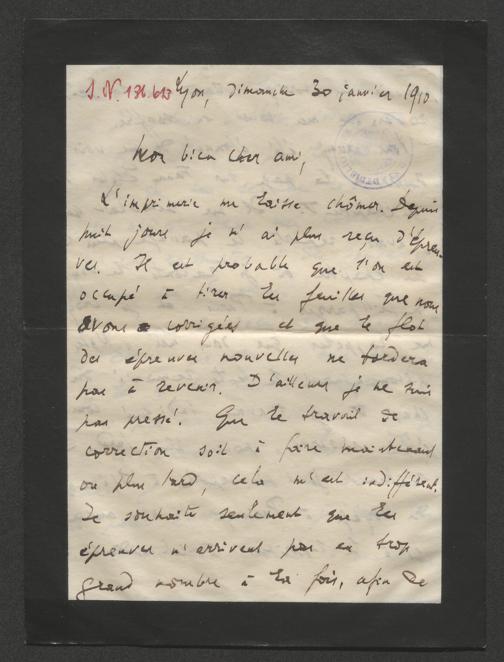 S.N. 136.613 Lyon, Dimanche 30 janvier 1910
Mon bien cher ami,
L'imprimerie me laisse chômer. Depuis
huit jours je n'ai plus reçu d'épreu-
ves. Il est probable que l'on est
occupé à tirer les feuilles que nous
avons corrigées et que le flot
des épreuves nouvelles ne tardera
pas à revenir. D'ailleurs je ne suis
pas pressé. Que le travail de
correction soit à faire maintenant
ou plus tard, cela m'est indifférent.
Je souhaite seulement que les
épreuves n'arrivent pas en trop
grand nombre à la fois, afin de